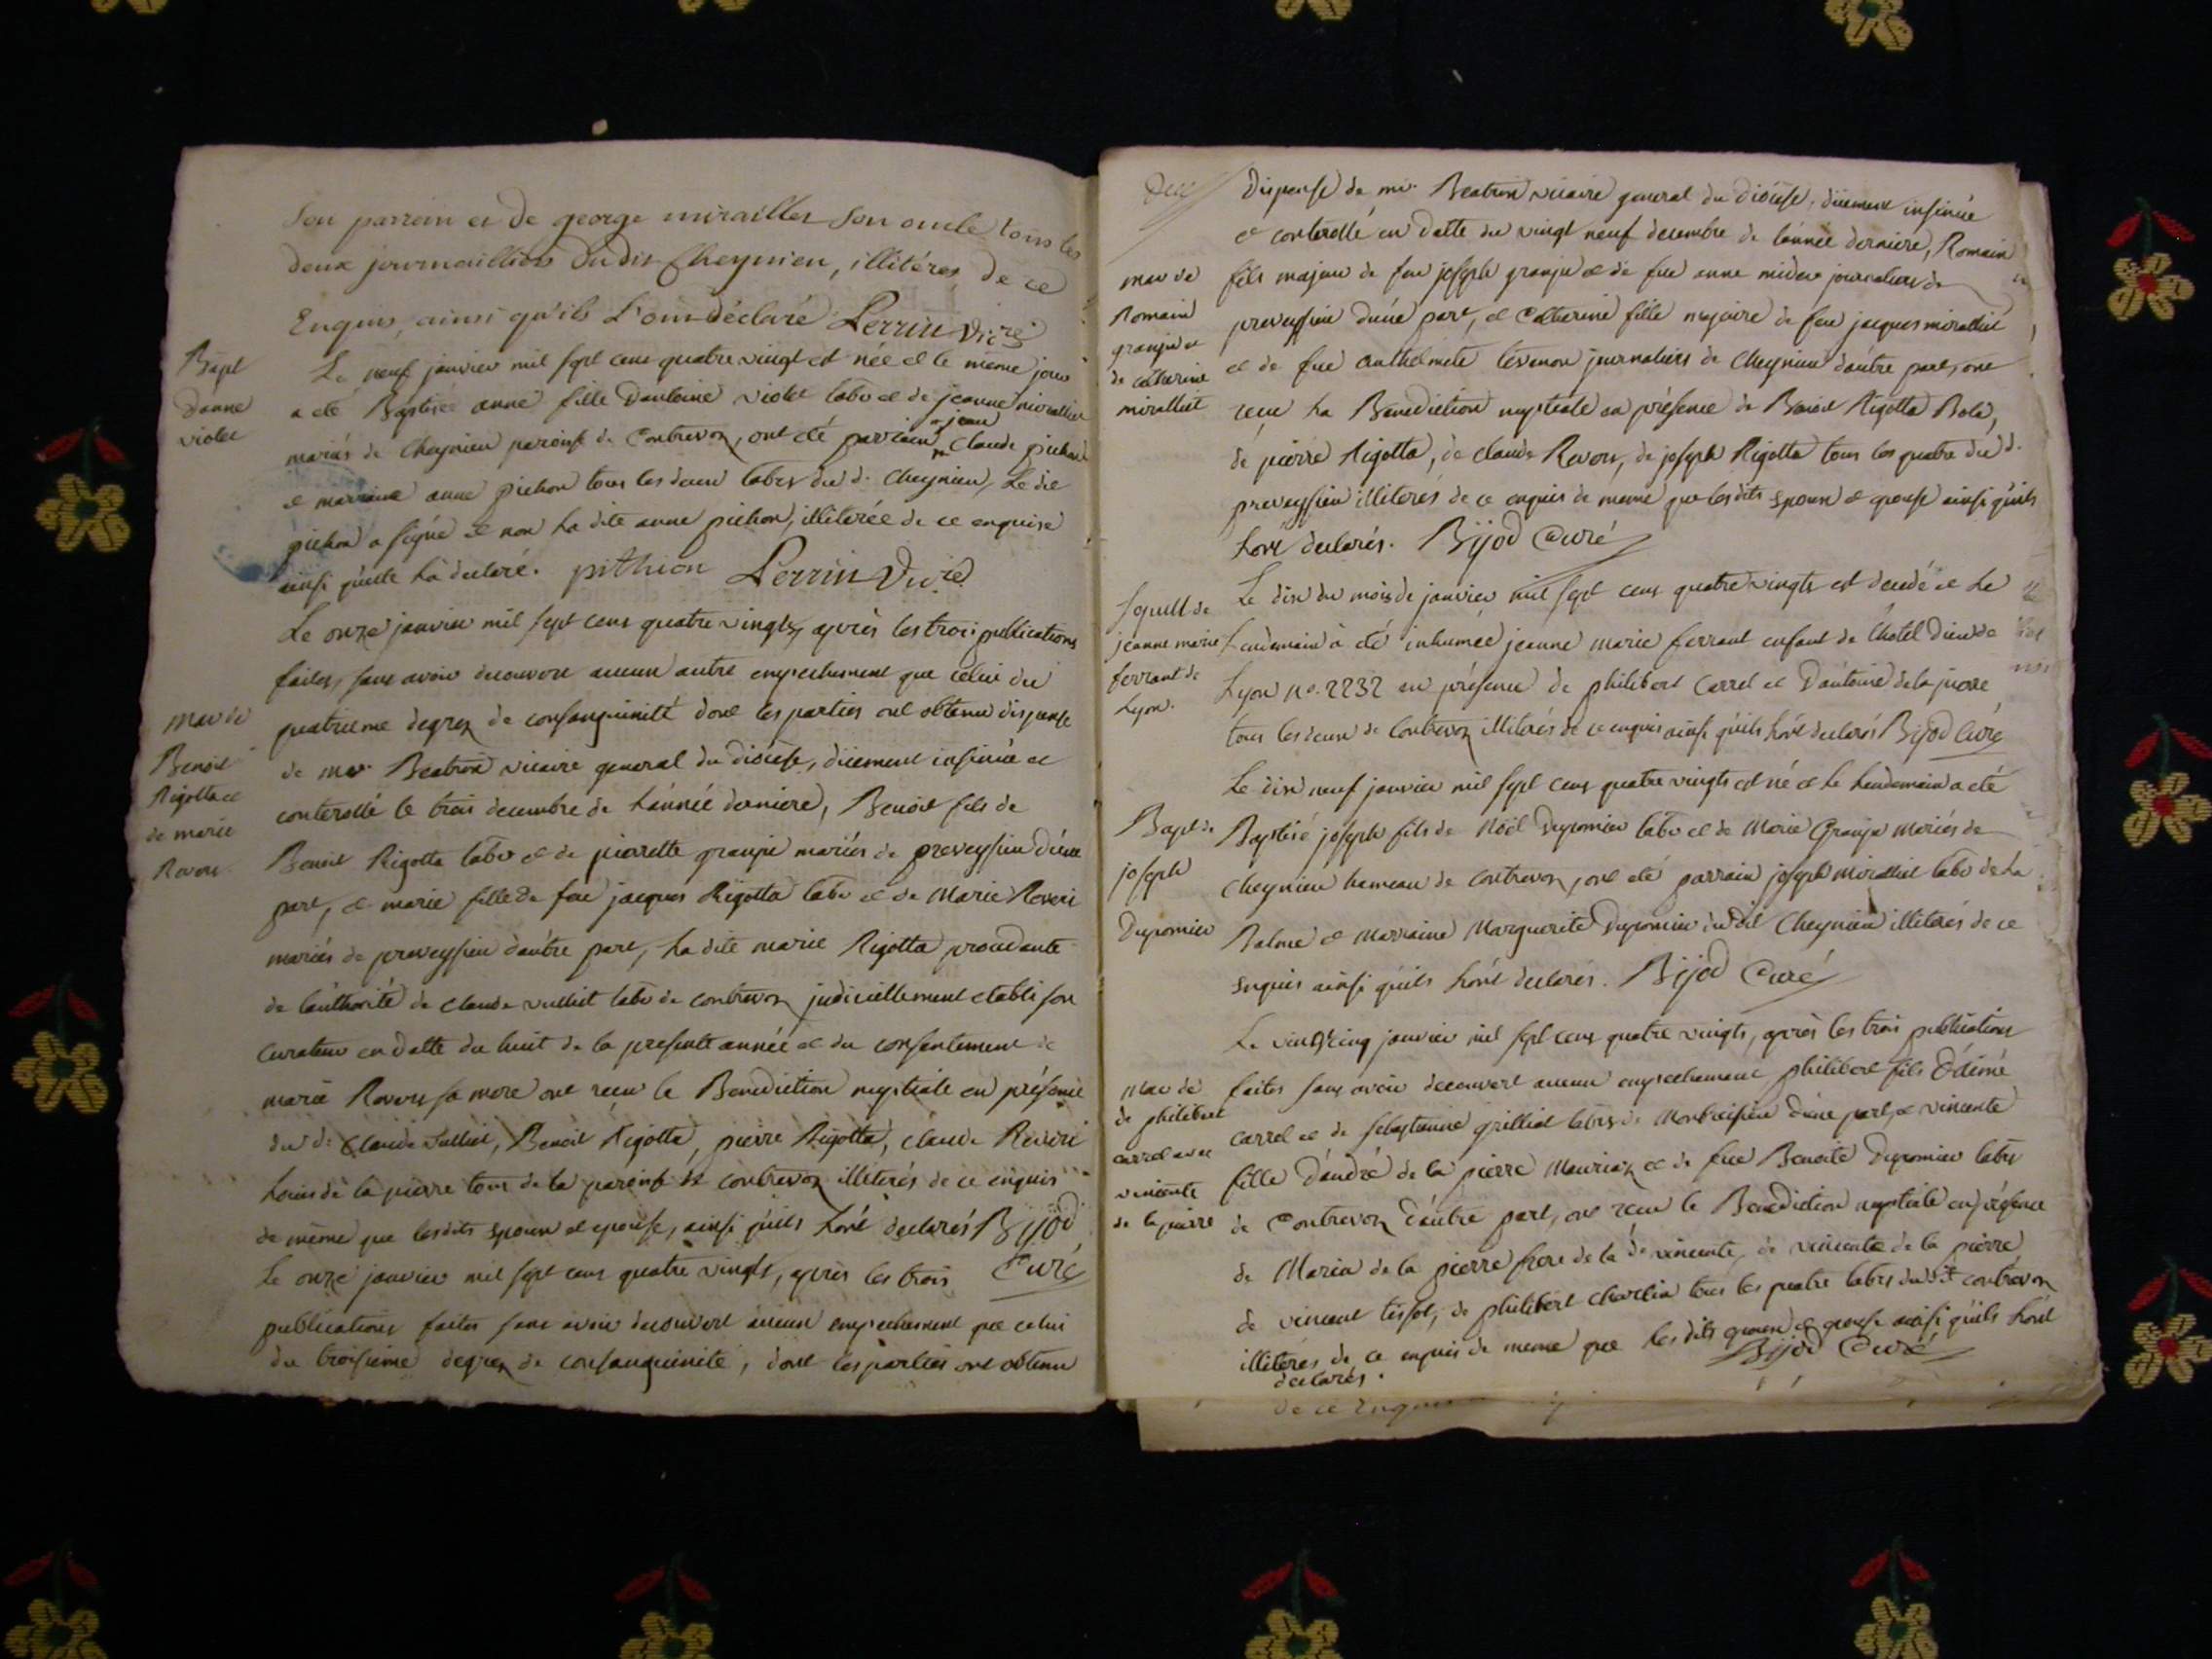 son parrein et de george mirailler son oncle tous les
deux journailliers dudit Cheynieu, illitéres de ce
Enquis, ainsi qu'ils L'ont déclaré Perrin Vicre
Bapt
d'anne
violet
Le neuf janvier mil sept cens quatre vingt est née et le meme jour
a été Baptisée anne fille d'antoine violet labr et de jeanne mirallier
mariés de Cheynieu paroisse de Contrevoz, ont été parrain jean Claude pichon
et marraine anne pichon tous les deux labrs du d. Cheynieu, Le dit
pichon a signé et non la dite anne pichon, illiterée de ce enquise
ainsi qu'elle l'a declaré. pithion Perrin Vicre
Le onze janvier mil sept cens quatre vingts, après les trois publications
faites, sans avoir decouvert aucun autre empechement que celui du
mar de
Benoit
Rigotta et
de marie
Ravors
quatrieme degrez de consanguinité dont les parties ont obtenu dispense
de mr Beatrix vicaire general du diocese, düement insinüé et
conterollé le trois decembre de l'année derniere, Benoit fils de
Benoit Rigotta labr et de pierrette granjer mariés de preveyssieu d'une
part, et marie fille de feu jacques Rigotta labr et de Marie
mariés de preveyssieu d'autre part, la dite marie Rigotta procedante
de l'authorité de claude vulliet labr de contrevoz judiciellement etabli son
curateur en datte du huit de la presente année et du consentement de
marie Ravors sa mere ont recu la Benediction nuptiale en présence
du d. Claude Vulliet, Benoit Rigotta, pierre Rigotta, claude
Louis de la pierre tous de la paroisse de contrevoz illiterés de ce enquis
de même que lesdits epoux et epouse, ainsi qu'ils l'ont declarés Bijod
Curé
Le onze janvier mil sept cens quatre vingts, après les trois
publications faites sans avoir decouvert aucun empechement que celui
du troisieme degrez de consanguinité, dont les parties ont obtenu
dispense de mr Beatrix vicaire general du diocese, düement insinüé
et conterollé en datte du vingt neuf decembre de l'année derniere, Romain
mar de
Romain
granjer et
de catherine
miralliet
fils majeur de feu joseph granjer et de feüe anne midier journaliers de
preveyssieu d'une part, et Catherine fille majeure de feu jacques miralliet
et de feüe anthelmete tevenon journaliers de Cheynieu d'autre part, ont
reçu la Benediction nuptiale en présence de Benoit Rigotta Bola,
de pierre Rigotta, de claude Ravors, de joseph Rigotta tous les quatre du d.
preveyssieu illiterés de ce enquis de meme que lesdits epoux et epouse ainsi qu'ils
l'ont declarés. Bijod Curé
sepult de
jeanne marie
ferrant de
Lyon.
Le dix du mois de janvier mil sept cens quatre vingts est decedée et le
lendemain a été inhumée jeanne marie ferrant enfant de l'hotel dieu de
Lyon no. 2232 en présence de philibert Carrel et d'antoine de la pierre
tous les deux de Contrevoz illiterés de ce enquis ainsi qu'ils l'ont declarés Bijod Curé
Le dix neuf janvier mil sept cens quatre vingts est né et le lendemain a été
Bapt de
joseph
Dupomier
Baptisé joseph fils de Nöel Dupomier labr et de Marie Granjer Mariés de
Cheynieu hameau de contrevoz, ont été parrain joseph Miralliet labr de La
Balme et Marraine Marguerite Dupomier du dit Cheynieu illiterés de ce
enquis ainsi qu'ils l'ont declarés. Bijod Curé
Le vingt cinq janvier mil sept cens quatre vingts, après les trois publications
mar de
de philibert
carrel avec
vincente
de la pierre
faites sans avoir decouvert aucun empechement philibert fils d'aimé
carrel et de sebastienne grilliet labrs de Montbreisieu d'une part, et vincente
fille d'andré de la pierre Mauriaz et de feüe Benoite Dupomier labrs
de Contrevoz d'autre part, ont recu la Benediction nuptiale en présence
de Marin de la pierre frere de la de vincente, de vincente de la pierre
de vincent tissot, de philibert charlin tous les quatre labrs dudit contrevoz
illiterés de ce enquis de meme que les dits epoux et epouse ainsi qu'ils l'ont
declarés. Bijod Curé
de ce Enquis